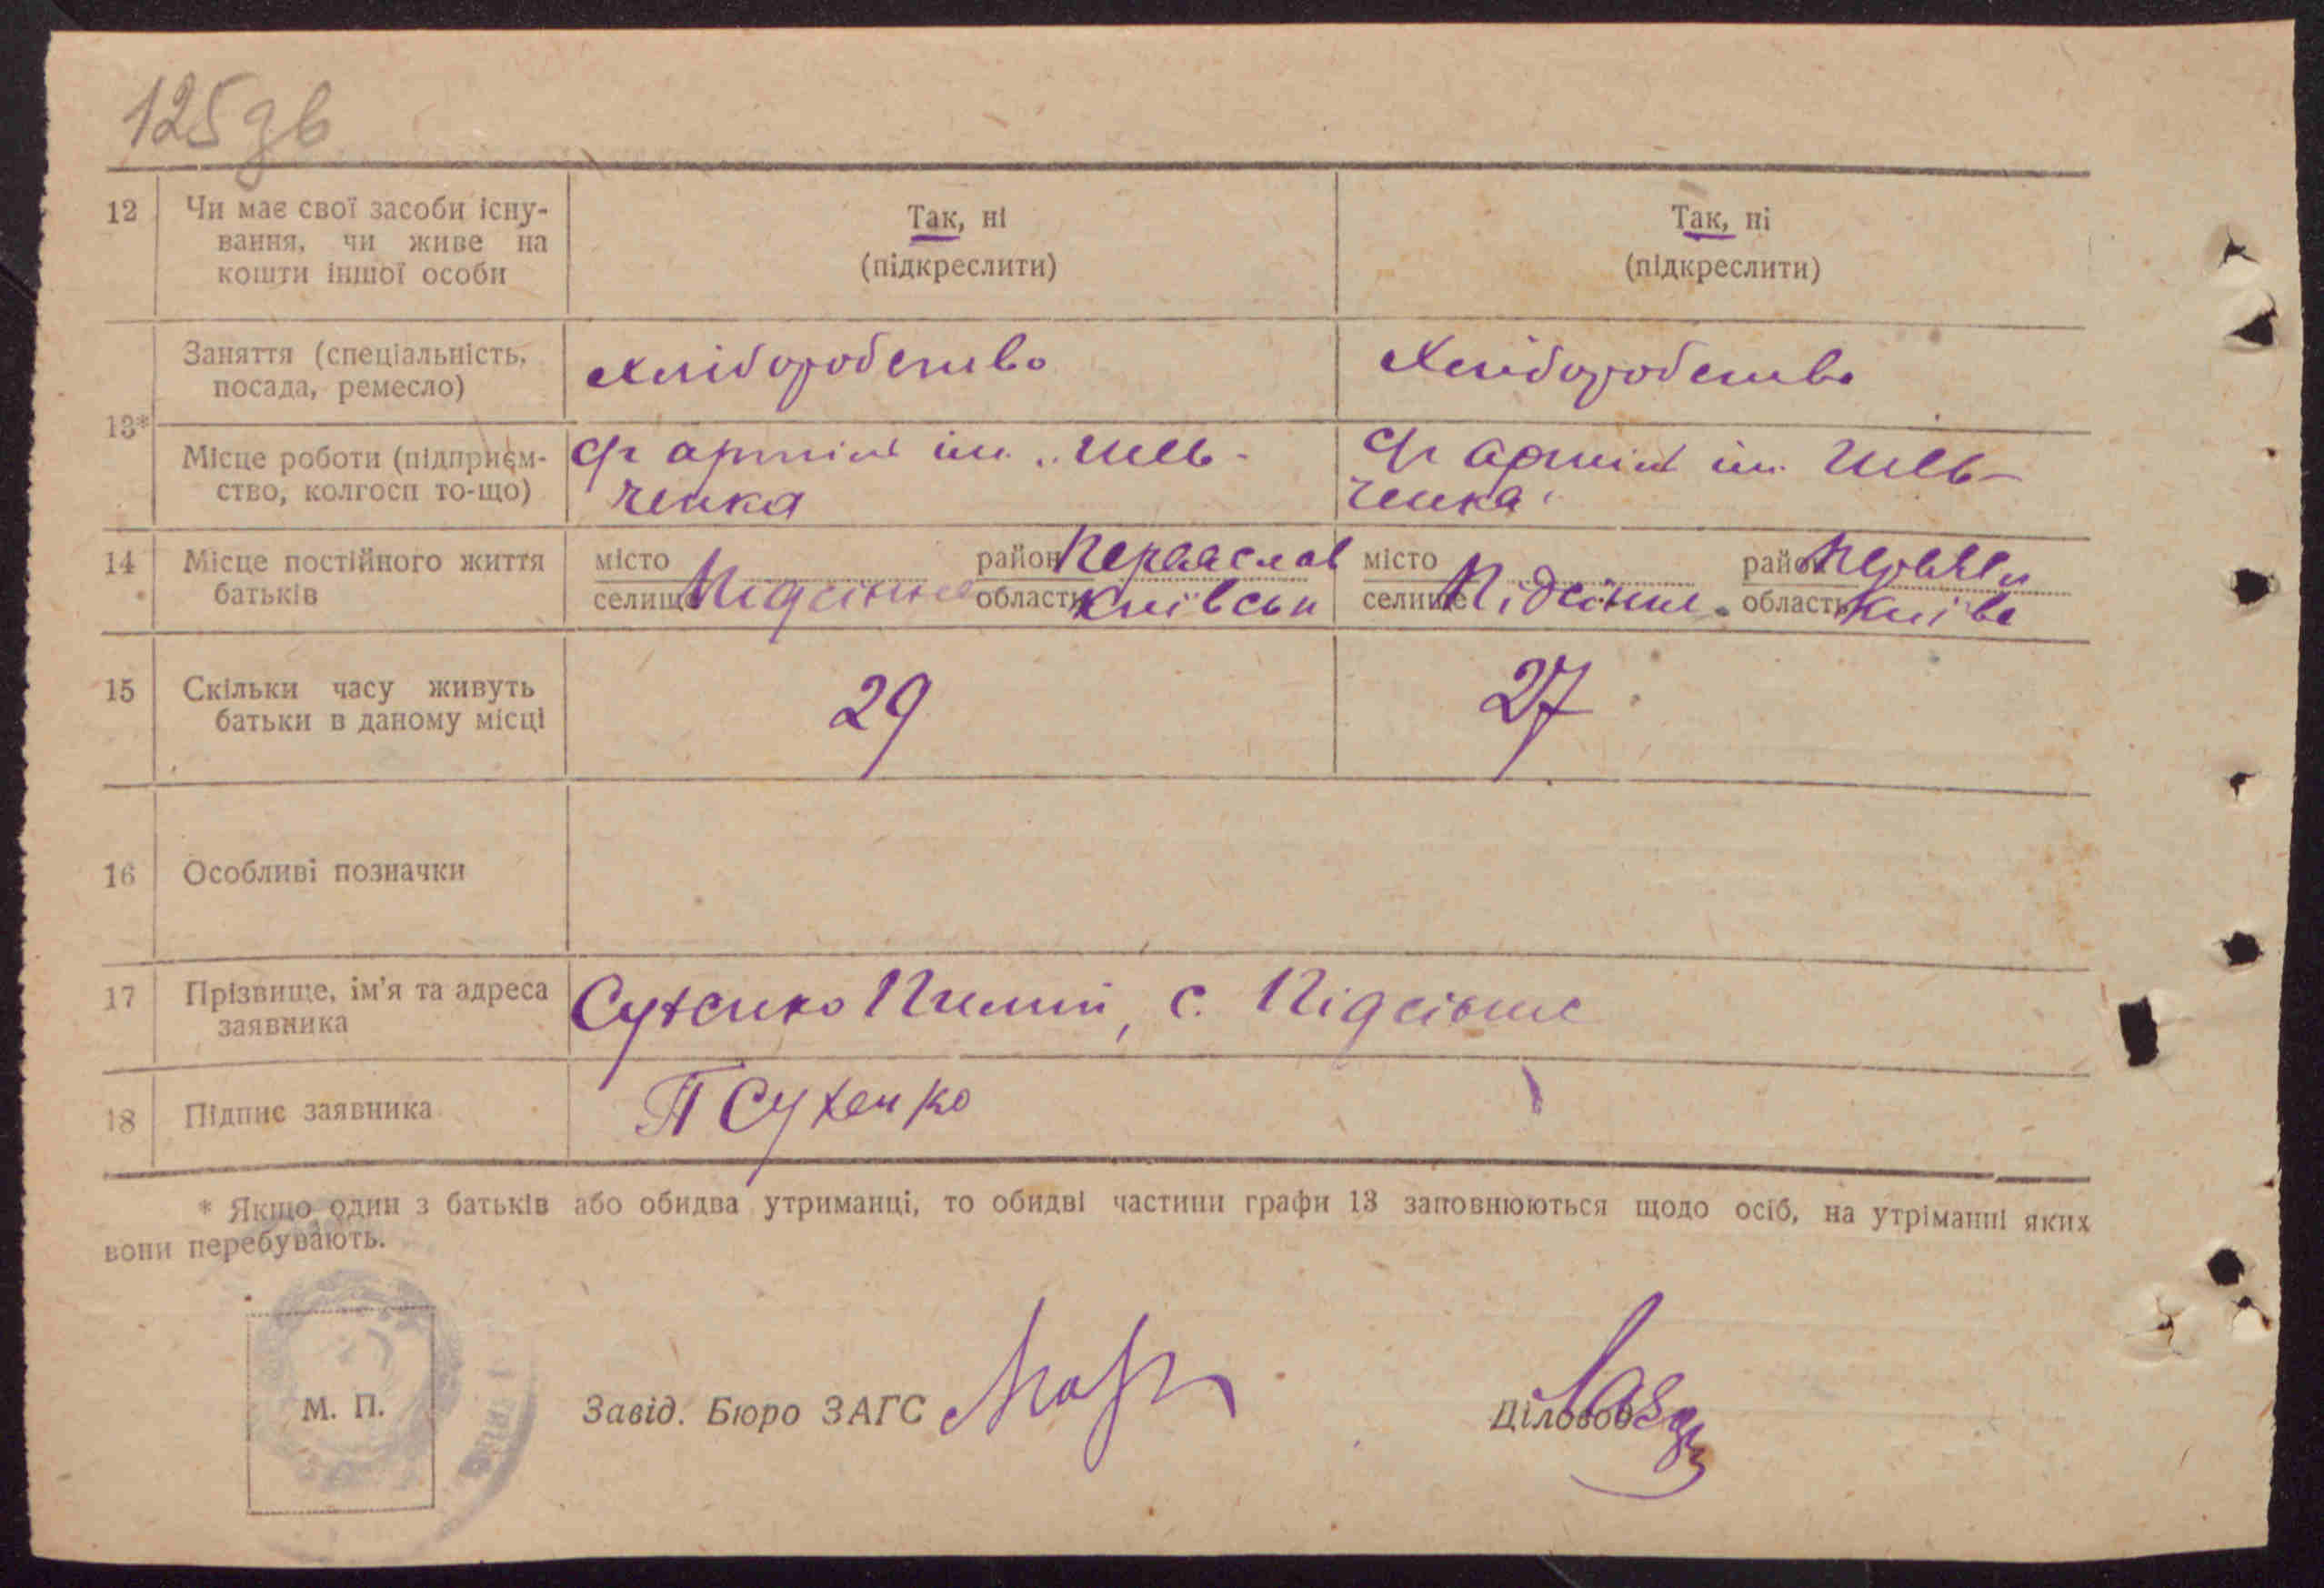 125 зв
12 Чи має свої засоби існу-
вання, чи живе на
кошти іншої особи
Так, ні
(підкреслити)
Так, ні
(підкреслити)
13*
Заняття (спеціальність,
посада, ремесло)
хліборобство
хліборобство
Місце роботи (підприєм-
ство, колгосп то-що)
с/г артіль ім. Шев-
ченка
с/г артіль ім. Шев-
ченка
14 Місце постійного життя
батьків
місто
селище Підсінне
район Переяслав
область Київськ
місто
селище Підсінне
район
область Київс
15 Скільки часу живуть
батьки в даному місці
29
27
16 Особливі позначки
17 Прізвище, ім'я та адреса
заявника
Сутенко, с. Підсінне
18 Підпис заявника
П Сутенко
* Якщо один з батьків або обидва утриманці, то обидві частини графи 13 заповнюються щодо осіб, на утріманні яких
вони перебувають.
М. П.
Завід. Бюро ЗАГС
Діловод